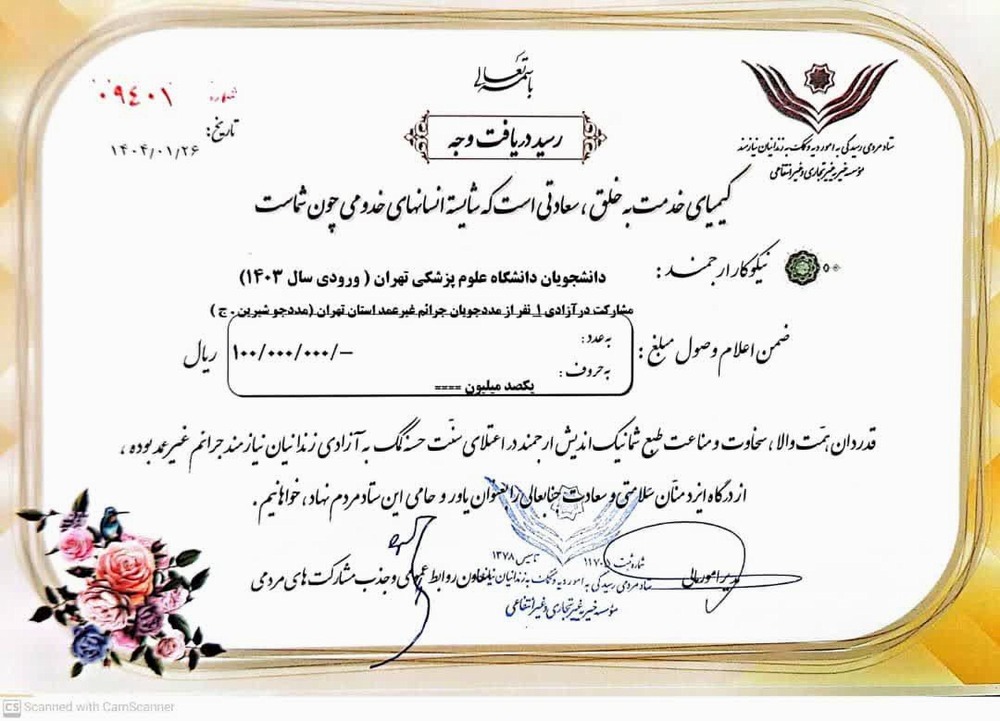 باسمه تعالی
شماره ۰۹۴۰۱
تاریخ: ۱۴۰۴/۰۱/۲۶
رسید دریافت وجه
ستاد مردمی رسیدگی به امور دیه و کمک به زندانیان نیازمند
مؤسسه خیریه غیرتجاری و غیرانتفاعی
کیمیای خدمت به خلق ، سعادتی است که شایسته انسانهای خدومی چون شماست
نیکوکار ارجمند : دانشجویان دانشگاه علوم پزشکی تهران ( ورودی سال ۱۴۰۳)
مشارکت در آزادی ۱ نفر از مددجویان جرائم غیرعمد استان تهران (مددجو شیرین . ج )
ضمن اعلام وصول مبلغ :
به عدد : ۱۰۰/۰۰۰/۰۰۰/– ریال
به حروف :
یکصد میلیون ====
قدردان همّت والا ، سخاوت و مناعت طبع شما نیک اندیش ارجمند در اعتلای سنّت حسنه کمک به آزادی زندانیان نیازمند جرائم غیرعمد بوده ،
از درگاه ایزد منّان سلامتی و سعادت جنابعالی را بعنوان یاور و حامی این ستاد مردم نهاد ، خواهانیم .
مدیر امور مالی
معاون روابط عمومی و جذب مشارکت های مردمی
شماره ثبت
تاسیس ۱۳۷۸
ستاد مردمی رسیدگی به امور دیه و کمک به زندانیان نیازمند
مؤسسه خیریه غیرتجاری و غیرانتفاعی
CS Scanned with CamScanner